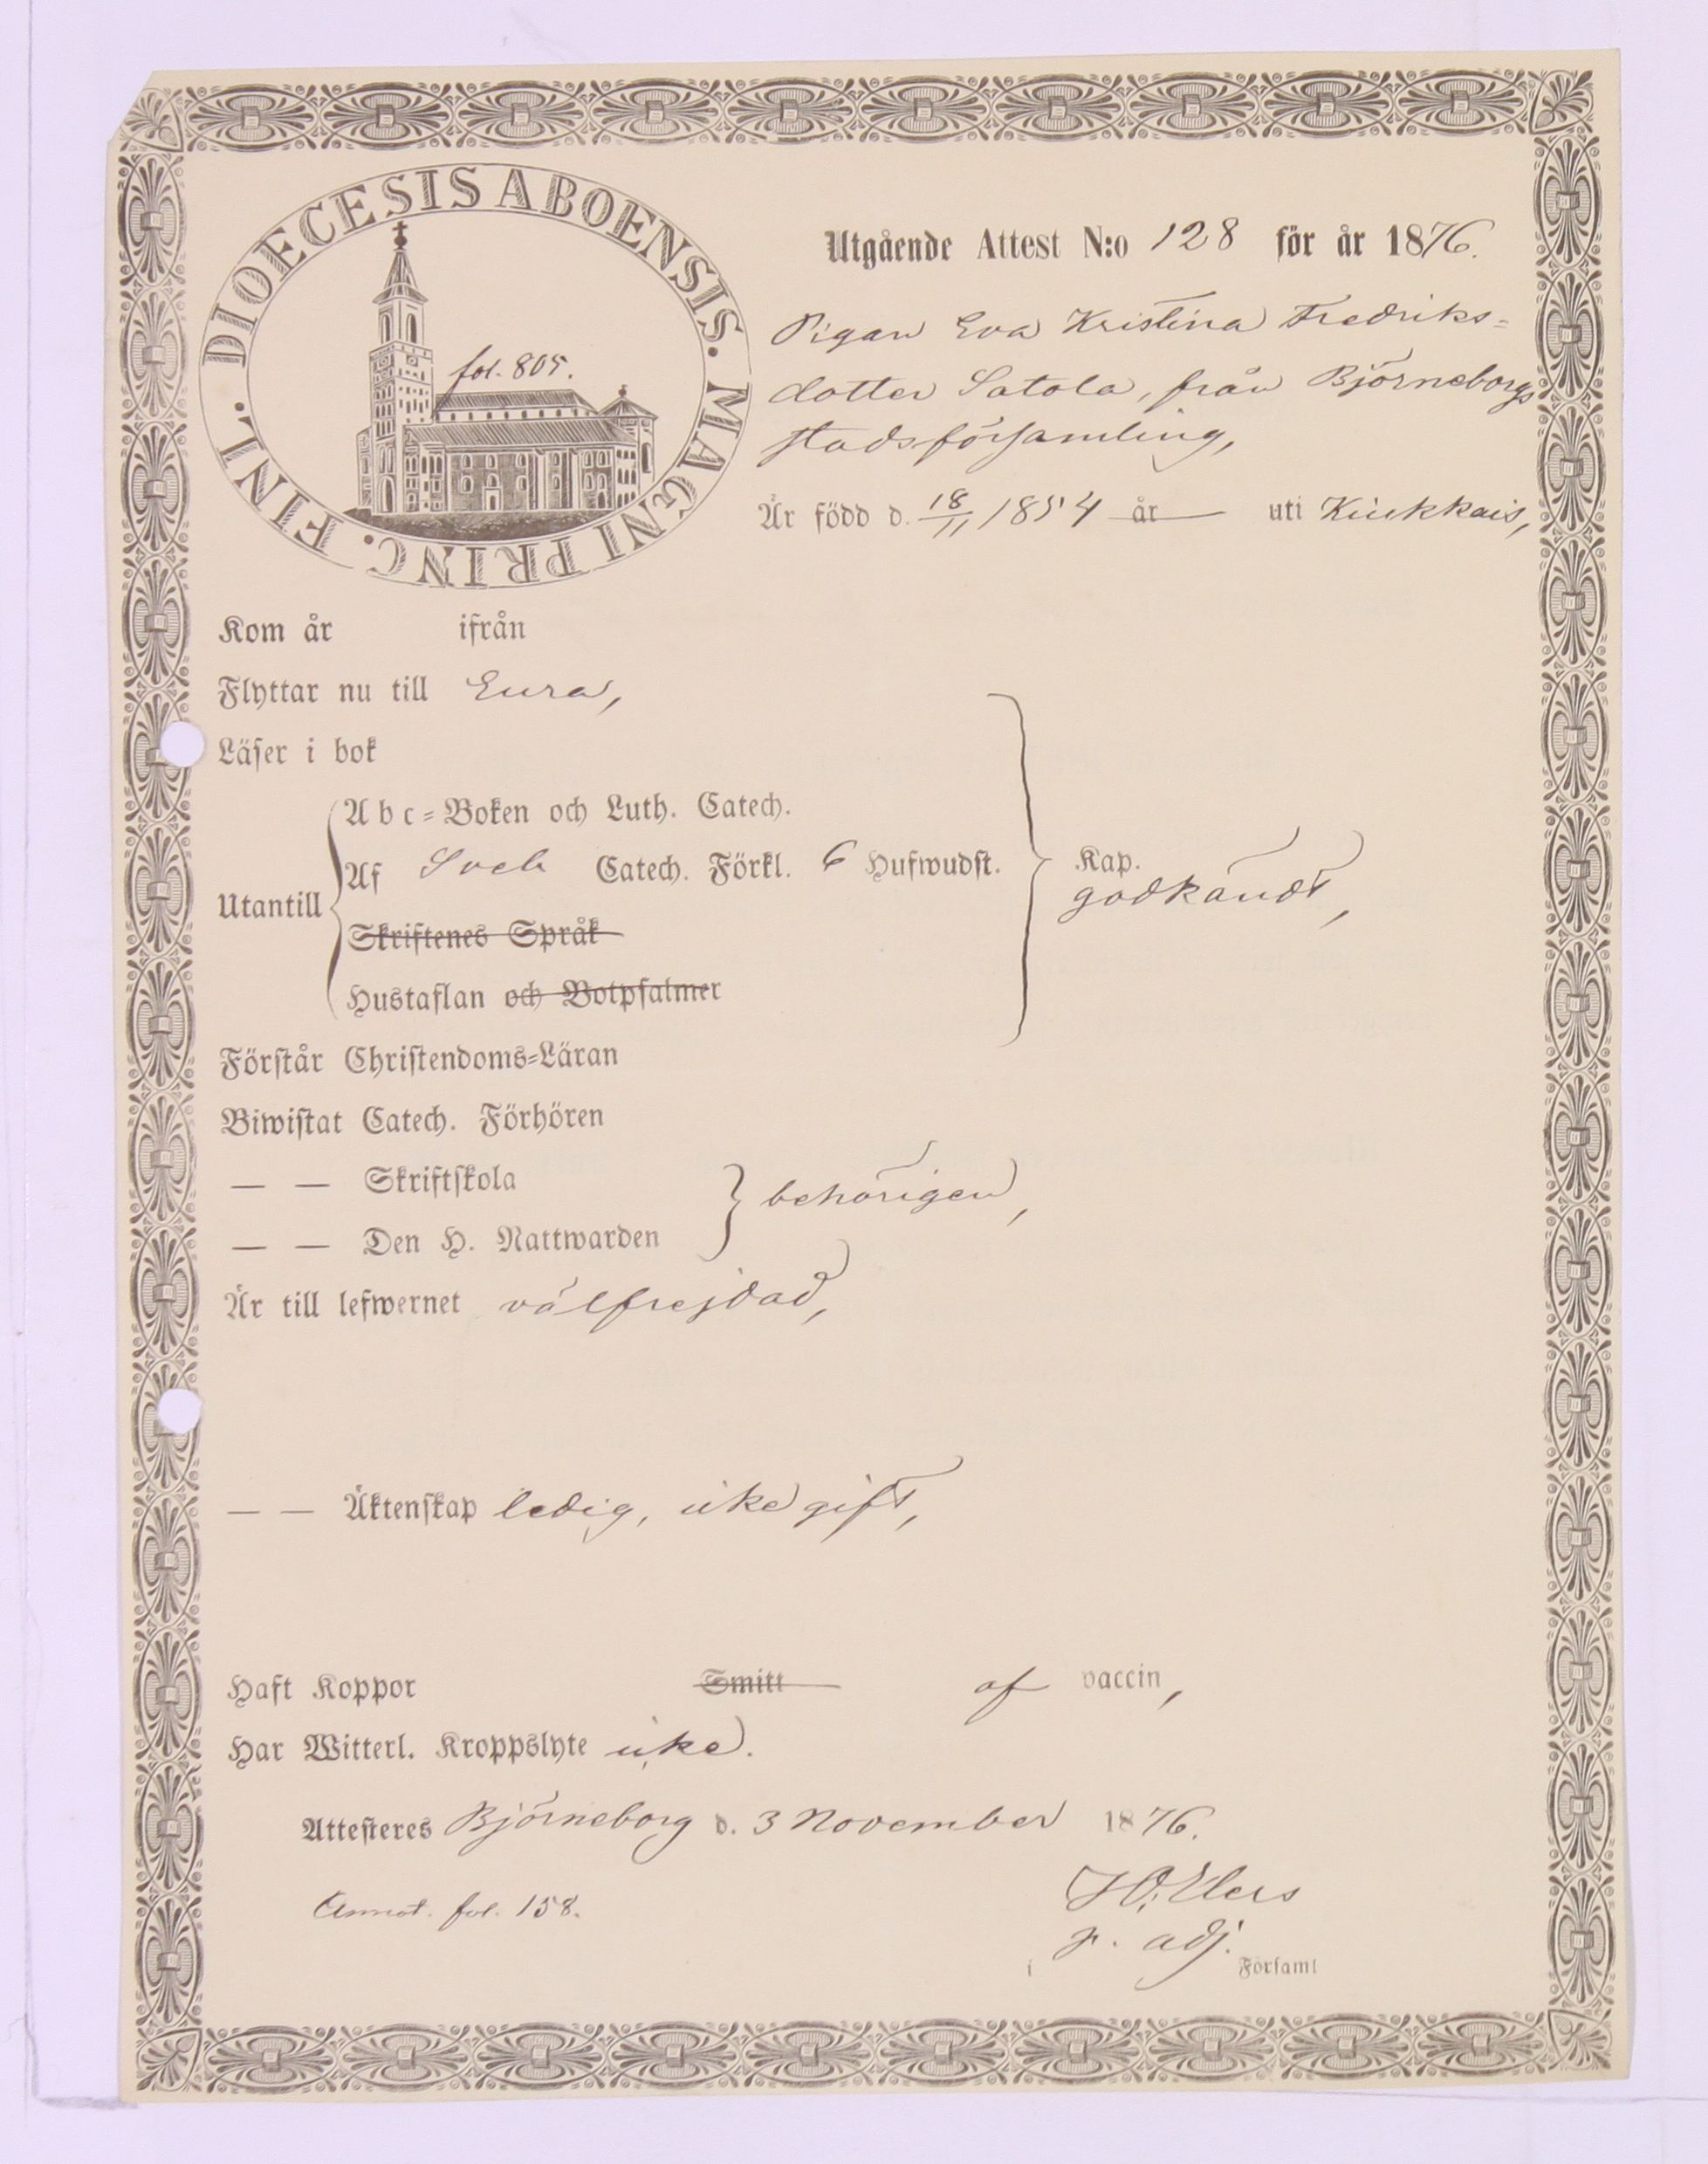 DIOECESIS ABOENSIS. MAGNI PRINC. FINL.
fol. 805.
Utgående Attest N:o 128 för år 1876.
Pigan Eva Kristina Fredriks=
dotter Satola, från Björneborgs
stadsförsamling,
Är född d. 18/11 1854 år uti Kiukkais,
Kom år ifrån
Flyttar nu till Eura,
Läser i bok
Abc=Boken och Luth. Catech.
Af Sveb Catech. Förkl. 6 Hufwudst.
Kap.
godkändt,
Utantill
Skriftenes Språk
Hustaflan och Botpsalmer
Förstår Christendoms=Läran
Biwistat Catech. Förhören
— — Skriftskola
behörigen,
— — Den H. Nattwarden
Är till lefwernet välfrejdad,
— — Äktenskap ledig, icke gift,
Haft Koppor Smitt af vaccin,
Har Witterl. Kroppslyte icke.
Attesteres Björneborg d. 3 November 1876.
Annot. fol. 158.
adj.
i Församl